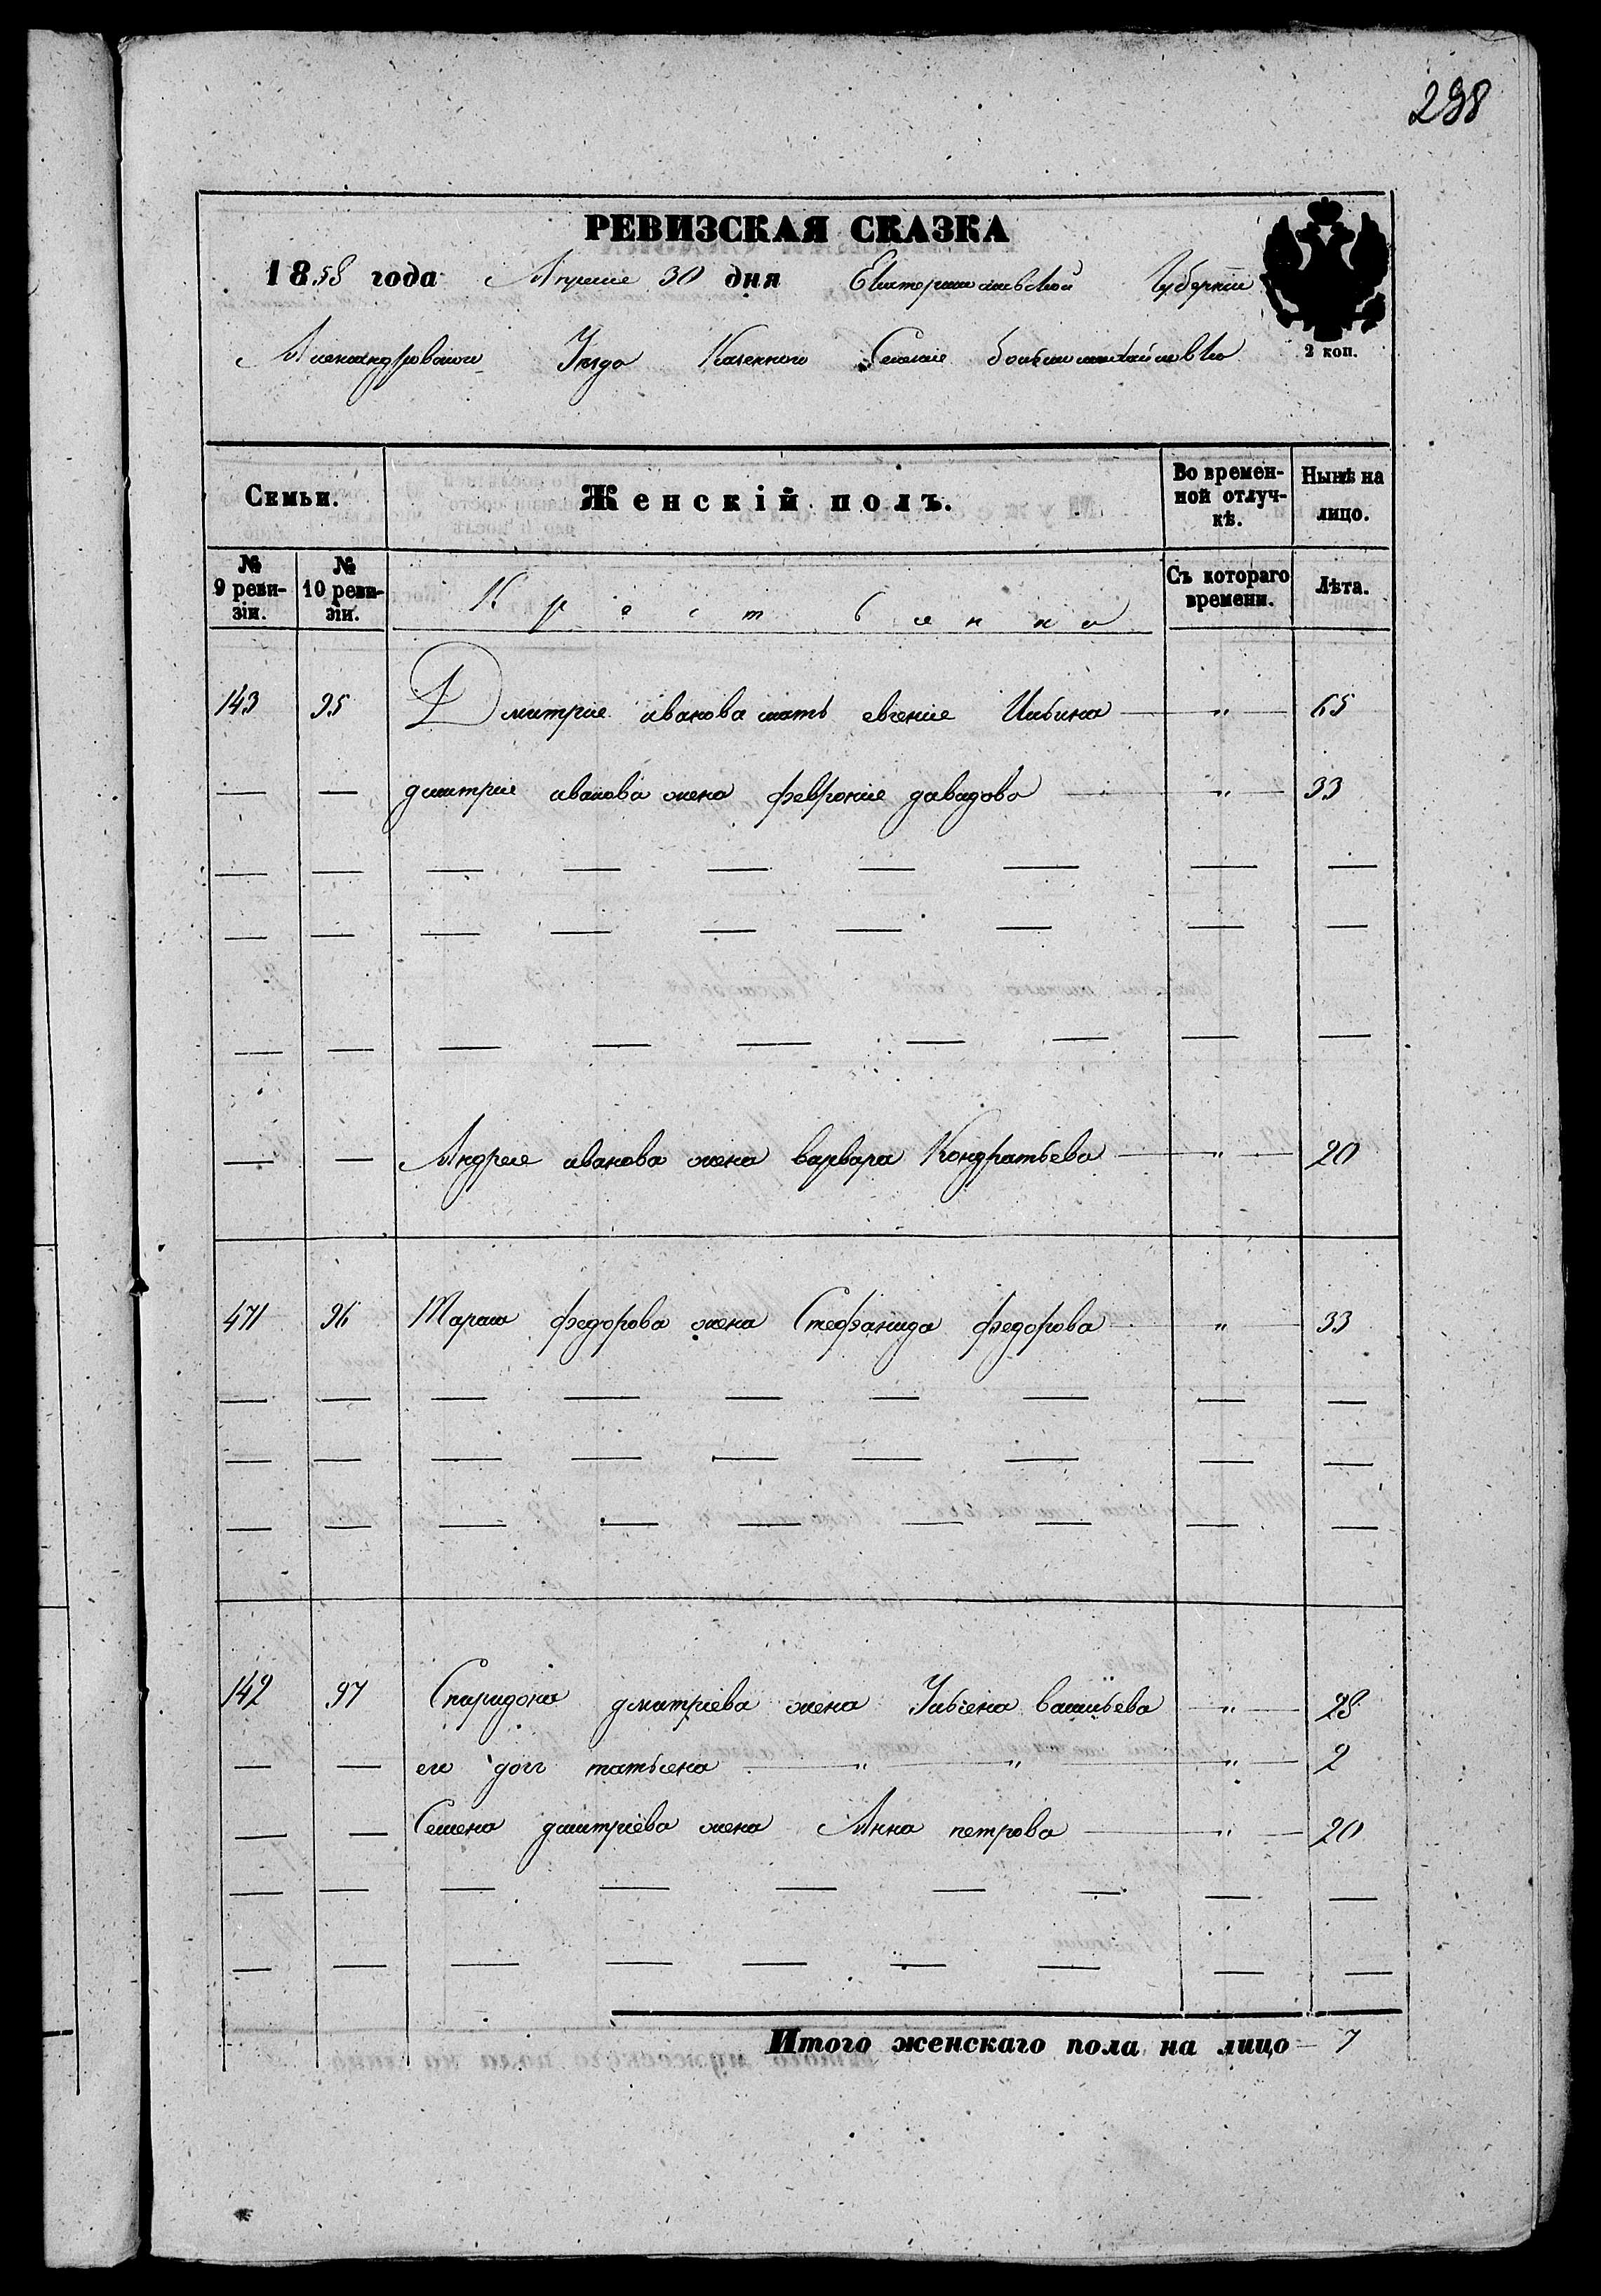 238
РЕВИЗСКАЯ СКАЗКА
1858 года Апреля 30 дня Екатеринославской Губернии
Александровского Уезда Казенного Селения Большемихайловки
2 коп.
Семьи. Женскій полъ. Во времен- Нынѣ на
ной отлуч- лицо.
кѣ.
№ № Съ котораго Лѣта.
9 реви- 10 реви- времени.
зіи. зіи.
Крестьенка
143 95 Дмитрие иванова мать евгение Ильина " 65
— — дмитрие иванова жена февроние давидова " 33
— — Андрее иванова жена варвара Кондратьева " 20
471 96 Тараса федорова жена Стефанида федорова " 33
142 97 Спиридона дмитріева жена Ульена васильева " 28
— — его доч татьена " " " 2
— — Семена дмитріева жена Анна петрова " 20
Итого женскаго пола на лицо 7